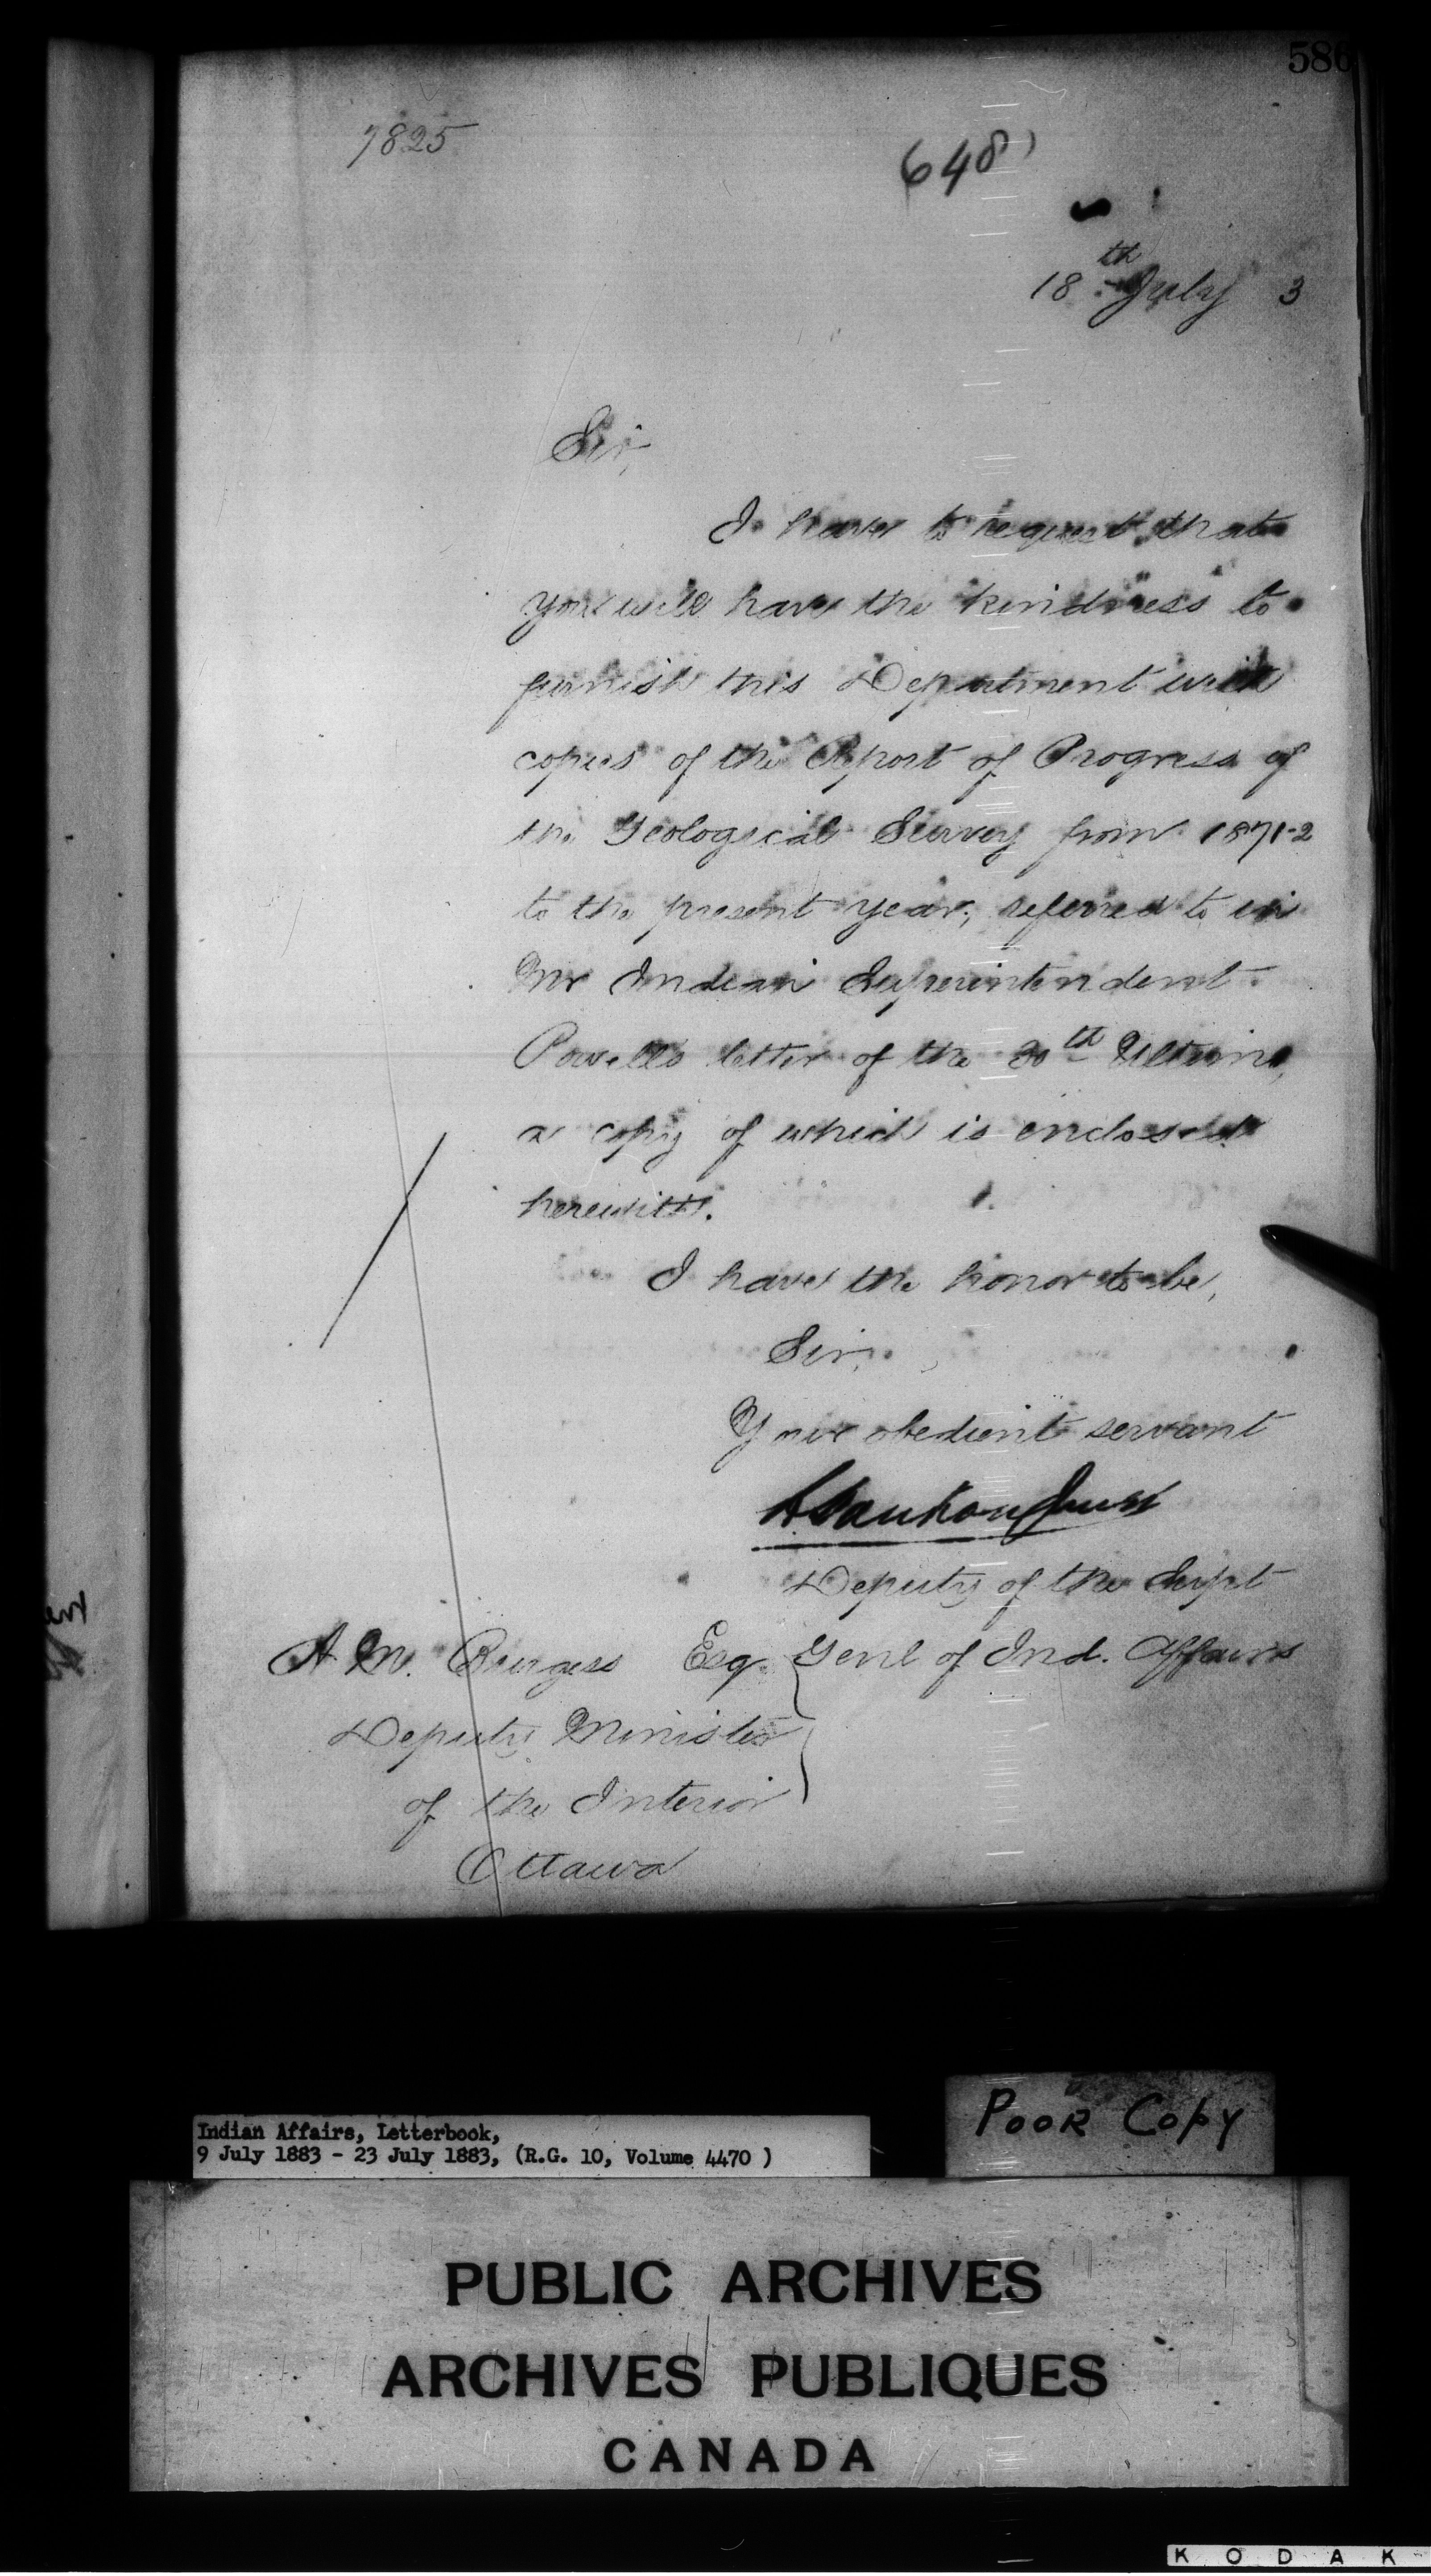 586
7825
648
18th July 3
Sir,
I have to request that
you will have the kindness to
furnish this Department with
copies of the Report of Progress of
the Geological Survey from 1871-2
to the present year, referred to in
Mr Indian Superintendent
Powell's letter of the 30th Ultimo,
a copy of which is enclosed
herewith.
I have the honor to be,
Sir,
Your obedient servant
L Vankoughnet
Deputy of the Supt
Genl of Ind. Affairs
A. M. Burgess Esq.
Deputy Minister
of the Interior
Ottawa
Indian Affairs, Letterbook,
9 July 1883 - 23 July 1883, (R.G. 10, Volume 4470 )
POOR COPY
PUBLIC ARCHIVES
ARCHIVES PUBLIQUES
CANADA
KODAK